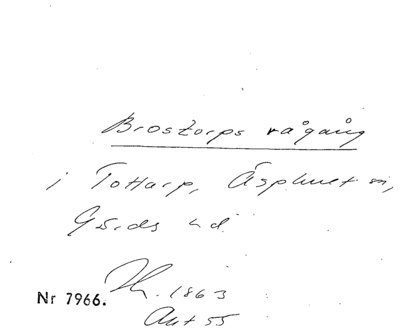 Brostorps rågång
i Tottarp, Äsphult sn,
Gärds hd.
Nr 7966. 1863
Akt 55